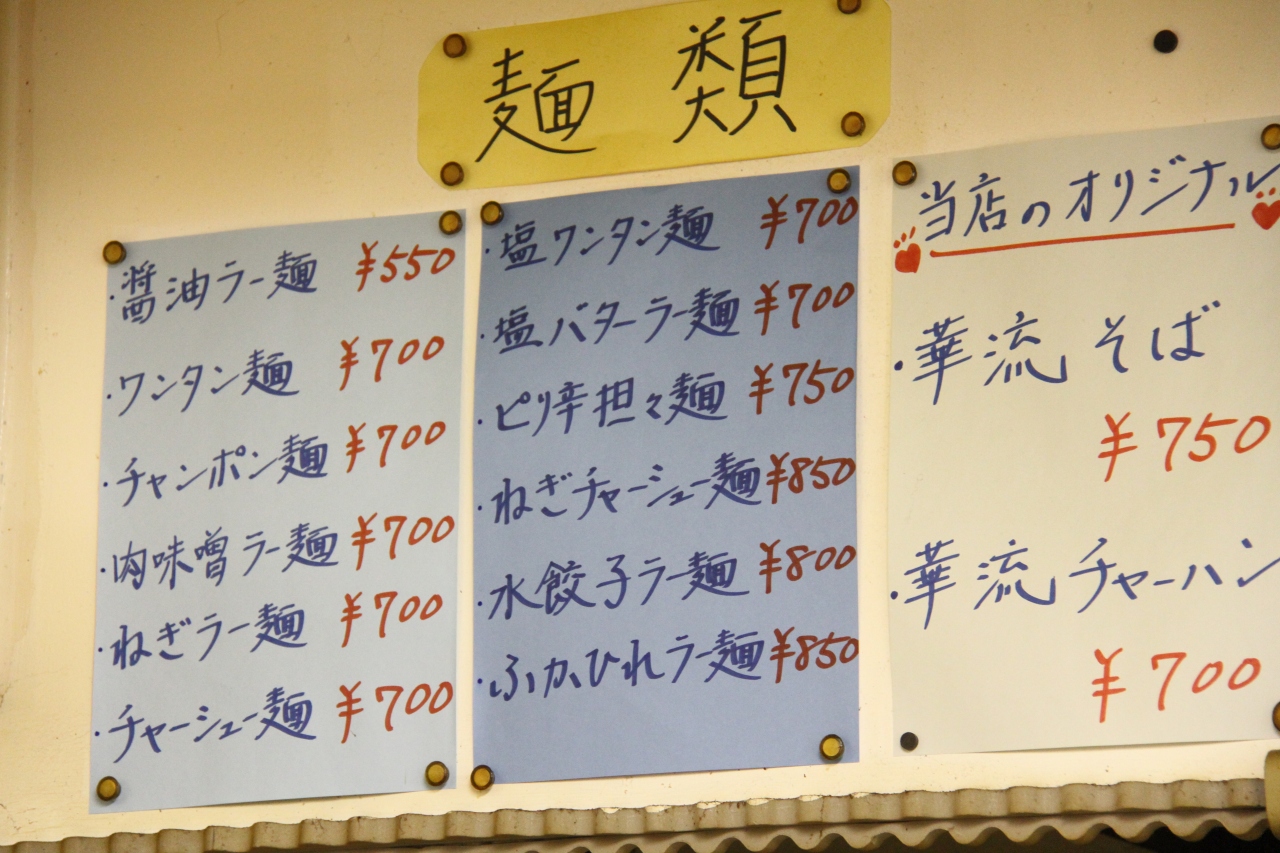 麺類
・醤油ラー麺 ¥550
・ワンタン麺 ¥700
・チャンポン麺 ¥700
・肉味噌ラー麺 ¥700
・ねぎラー麺 ¥700
・チャーシュー麺 ¥700
・塩ワンタン麺 ¥700
・塩バターラー麺 ¥700
・ピリ辛担々麺 ¥750
・ねぎチャーシュー麺 ¥850
・水餃子ラー麺 ¥800
・ふかひれラー麺 ¥850
当店のオリジナル
・華流そば
¥750
・華流チャーハン
¥700